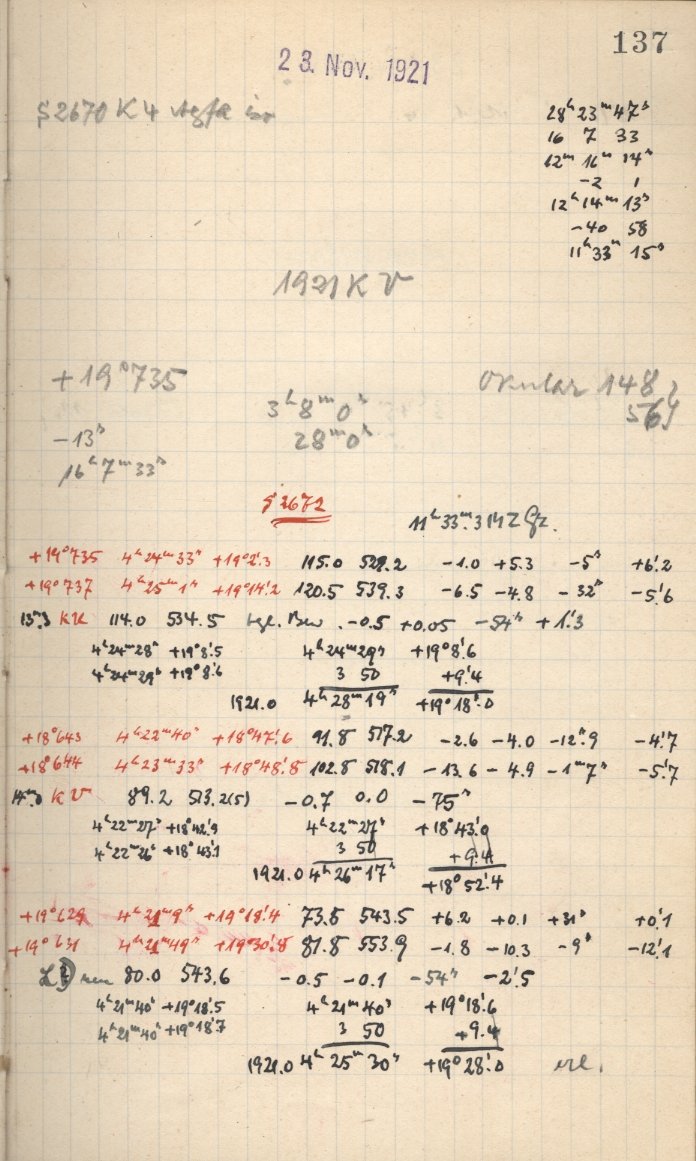 137
23. Nov. 1921
§2670 K4 Agfa iso
28ʰ23ᵐ47ˢ
16 7 33
12ᵐ 16ᵐ 14ˢ
-2 1
12ʰ14ᵐ13ˢ
-40 58
11ʰ33ᵐ 15ˢ
1921 KV
+19°735
Okular 148
56
3ʰ8ᵐ0ˢ
-13ˢ
28ᵐ0ˢ
16ʰ7ᵐ33ˢ
§2672
11ʰ33ᵐ.3 MZ Gz.
+19°735 4ʰ24ᵐ33ˢ +19°2'.3 115.0 529.2 -1.0 +5.3 -5ˢ +6'.2
+19°737 4ʰ25ᵐ1ˢ +19°14'.2 120.5 539.3 -6.5 -4.8 -32ˢ -5'.6
13ᵐ.3 KU 114.0 534.5 -0.5 +0.05 -54ˢ +1'.3
4ʰ24ᵐ28ˢ +19°8'.5 4ʰ24ᵐ29ˢ +19°8'.6
4ʰ24ᵐ29ˢ +19°8'.6 3 50 +9'.4
1921.0 4ʰ28ᵐ19ˢ +19°18'.0
+18°643 4ʰ22ᵐ40ˢ +18°47'.6 91.8 517.2 -2.6 -4.0 -12ˢ.9 -4'.7
+18°644 4ʰ23ᵐ33ˢ +18°48'.8 102.8 518.1 -13.6 -4.9 -1ᵐ7ˢ -5'.7
14ᵐ.0 KV 89.2 513.2(5) -0.7 0.0 -75ˢ
4ʰ22ᵐ27ˢ +18°42'.9 4ʰ22ᵐ27ˢ +18°43'.0
4ʰ22ᵐ26ˢ +18°43'.1 3 50 +9.4
1921.0 4ʰ26ᵐ17ˢ +18°52'.4
+19°629 4ʰ21ᵐ9ˢ +19°18'.4 73.8 543.5 +6.2 +0.1 +31ˢ +0'.1
+19°631 4ʰ21ᵐ49ˢ +19°30'.8 81.8 553.9 -1.8 -10.3 -9ˢ -12'.1
neu 80.0 543.6 -0.5 -0.1 -54ˢ -2'.5
4ʰ21ᵐ40ˢ +19°18'.5 4ʰ21ᵐ40ˢ +19°18'.6
4ʰ21ᵐ40ˢ +19°18'.7 3 50 +9.4
1921.0 4ʰ25ᵐ30ˢ +19°28'.0